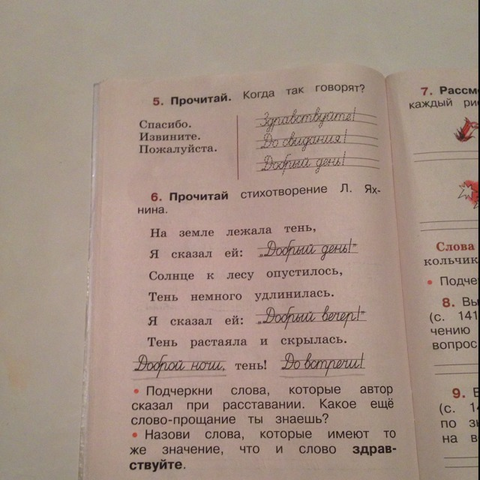 5. Прочитай. Когда так говорят?
Спасибо.
Извините.
Пожалуйста.
Здравствуйте!
До свидания!
Добрый день!
6. Прочитай стихотворение Л. Ях-
нина.
На земле лежала тень,
Я сказал ей: „Добрый день!“
Солнце к лесу опустилось,
Тень немного удлинилась.
Я сказал ей: „Добрый вечер!“
Тень растаяла и скрылась.
Доброй ночи, тень! До встречи!
• Подчеркни слова, которые автор
сказал при расставании. Какое ещё
слово-прощание ты знаешь?
• Назови слова, которые имеют то
же значение, что и слово здрав-
ствуйте.
7. Рассм
каждый ри
Слова
кольчик
• Подче
8. Вы
(с. 141
чению
вопрос
9.
(с. 14
по зн
на в